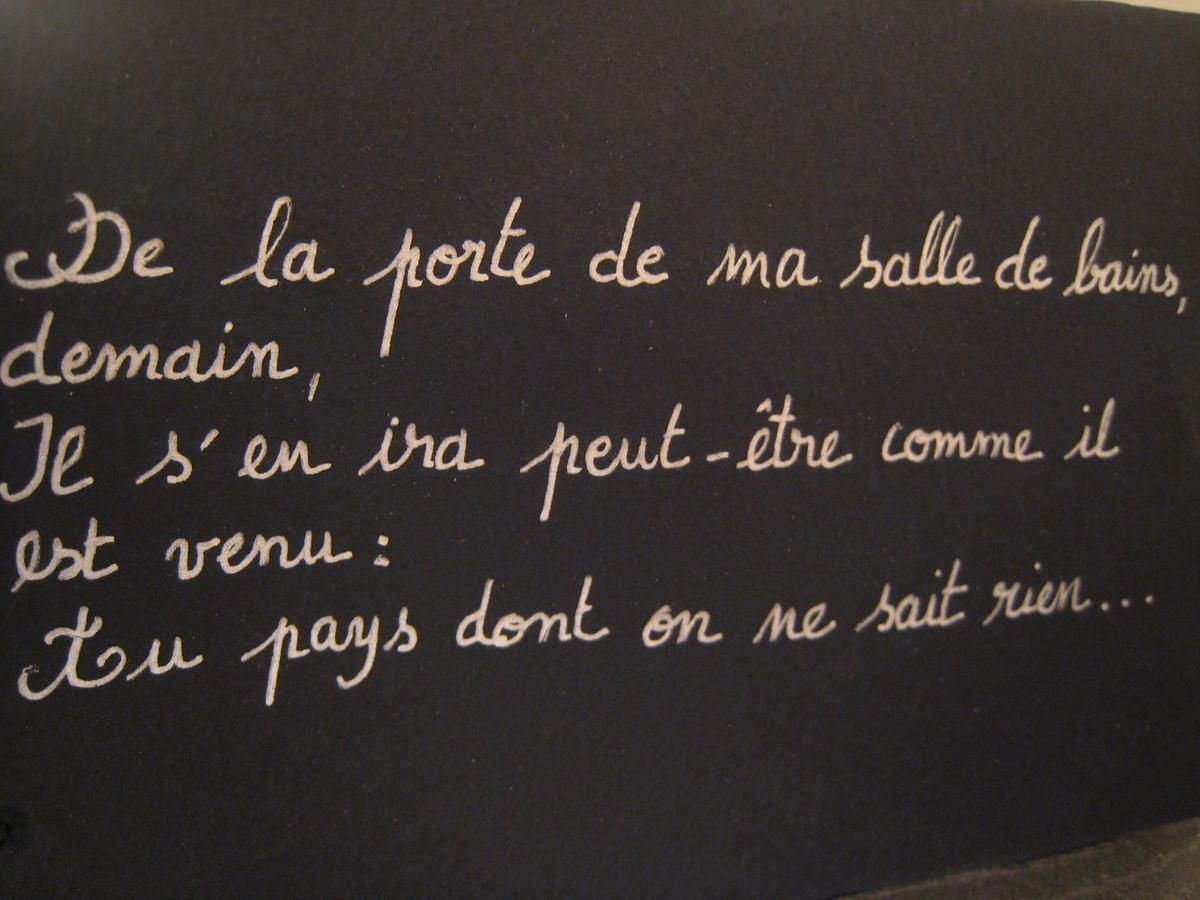 De la porte de ma salle de bains,
demain,
Il s'en ira peut-être comme il
est venu :
Au pays dont on ne sait rien...